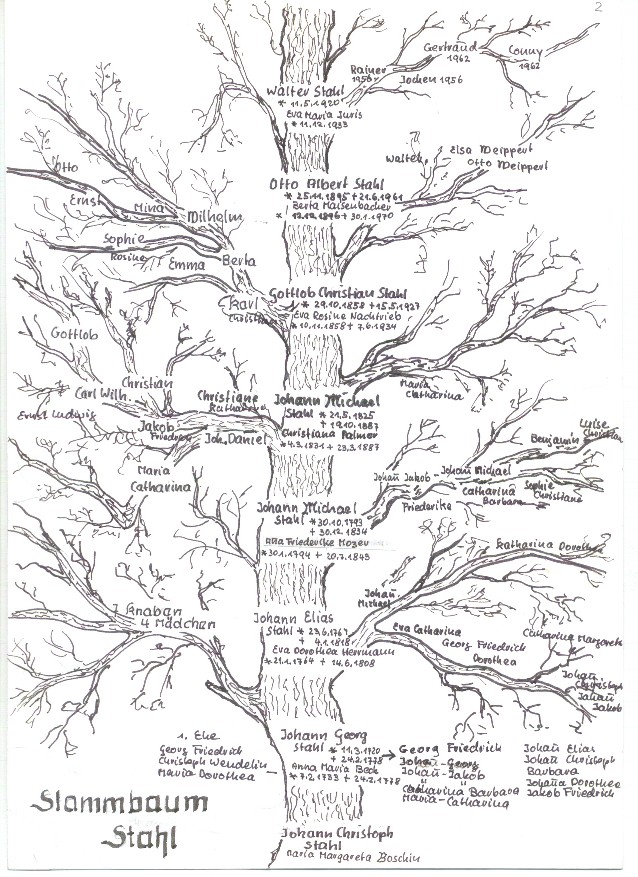 2
Gertraud
1962
Conny
1962
Rainer
1958
Jochen 1956
Walter Stahl
* 11.5.1920
Eva Maria Juris
* 11.12.1933
Walter
Elsa Meippert
Otto Meippert
Otto Albert Stahl
* 25.11.1895 + 21.6.1961
Berta Maisenbacher
* 12.12.1896 + 30.1.1970
Otto
Ernst
Mina
Wilhelm
Sophie
Rosine
Emma
Berta
Karl
Gottlob Christian Stahl
* 29.10.1858 + 15.5.1927
Eva Rosine Nachtrieb
* 10.11.1858 + 7.6.1934
Gottlob
Christian
Carl Wilh.
Ernst Ludwig
Christiane
Katharina
Jakob
Friedrich
Joh. Daniel
Maria
Catharina
Johann Michael
Stahl * 21.5.1825
+ 19.10.1887
Christiana Palmer
* 4.3.1831 + 23.3.1887
Maria
Catharina
Luise
Christian
Benjamin
Johañ Jakob
Johañ Michael
Sophie
Christiane
Catharina
Barbara
Friederike
Johann Michael
Stahl * 30.10.1793
+ 30.12.1834
Anna Friederike Mozer
* 30.10.1794 + 20.7.1843
Katharina Dorothea
Johañ
Michael
7 Knaben
4 Mädchen
Johann Elias
Stahl * 23.6.1767
+ 4.1.1818
Eva Dorothea Herrmann
* 21.1.1764 + 14.6.1808
Eva Catharina
Georg Friedrich
Dorothea
Catharina Margareta
Johañ
Christoph
Johañ
Jakob
1. Ehe
Georg Friedrich
Christoph Wendelin
Maria Dorothea
Johann Georg
Stahl * 11.3.1720
+ 24.2.1778
Anna Maria Beck
* 7.2.1733 + 24.2.1778
Georg Friedrich
Johañ-Georg
Johañ-Jakob
Catharina Barbara
Maria-Catharina
Johañ Elias
Johañ Christoph
Barbara
Johaña Dorothea
Jakob Friedrich
Stammbaum
Stahl
Johann Christoph
Stahl
Maria Margareta Boschin